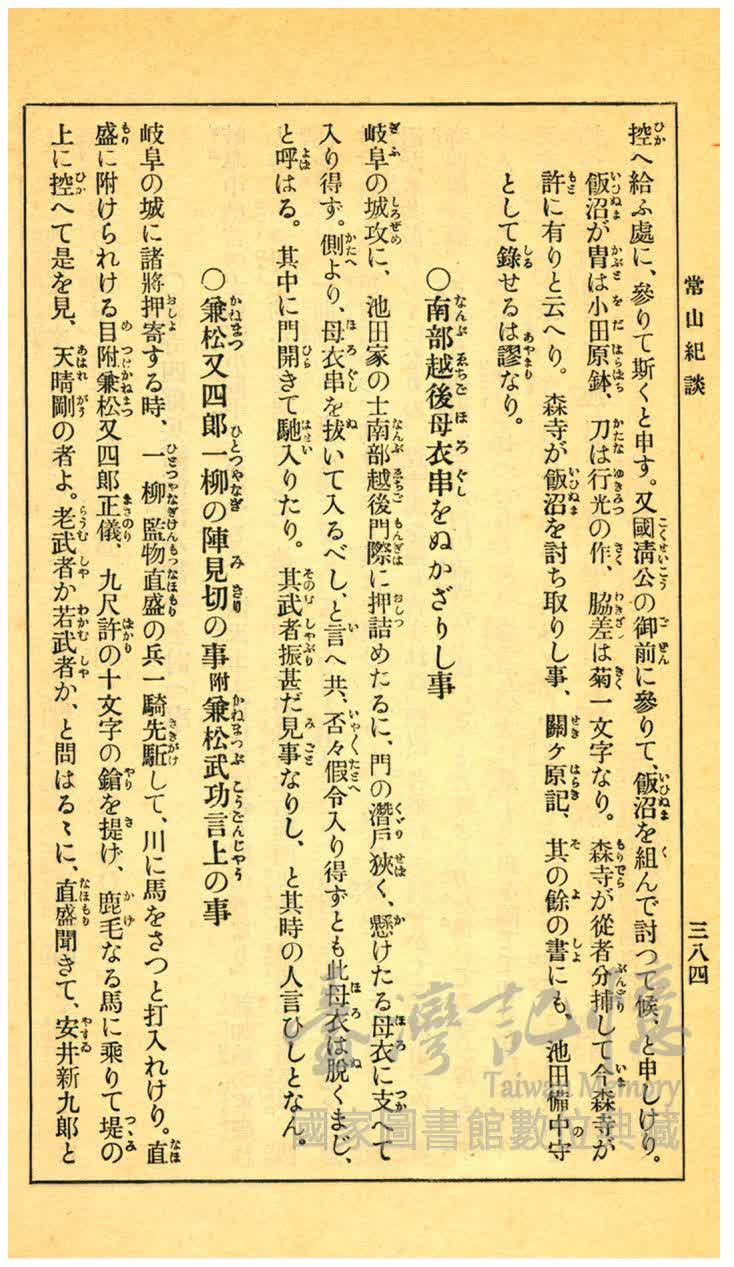 常山紀談
三八四
控へ給ふ處に、參りて斯くと申す。又國淸公の御前に參りて、飯沼を組んで討つて候、と申しけり。
飯沼が冑は小田原鉢、刀は行光の作、脇差は菊一文字なり。森寺が從者分捕して今森寺が
許に有りと云へり。森寺が飯沼を討ち取りし事、關ヶ原記、其の餘の書にも、池田備中守
として錄せるは謬なり。
〇南部越後母衣串をぬかざりし事
岐阜の城攻に、池田家の士南部越後門際に押詰めたるに、門の潛戶狹く、懸けたる母衣に支へて
入り得ず。側より、母衣串を拔いて入るべし、と言へ共、否々假令入り得ずとも此母衣は脫くまじ、
と呼はる。其中に門開きて馳入りたり。其武者振甚だ見事なりし、と其時の人言ひしとなん。
〇兼松又四郎一柳の陣見切の事附兼松武功言上の事
岐阜の城に諸將押寄する時、一柳監物直盛の兵一騎先駈して、川に馬をさつと打入れけり。直
盛に附けられける目附兼松又四郎正儀、九尺許の十文字の鎗を提げ、鹿毛なる馬に乘りて堤の
上に控へて是を見、天晴剛の者よ。老武者か若武者か、と問はるゝに、直盛聞きて、安井新九郎と
臺灣記憶
Taiwan Memory
國家圖書館數位典藏